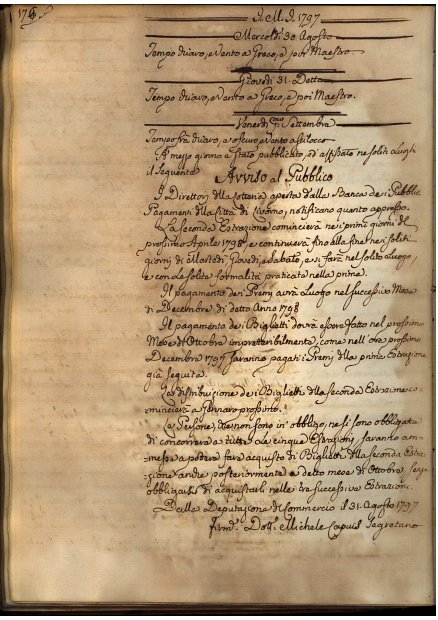 I. M. I. 1797
Mercoldì 30. Agosto
Tempo chiaro, e Vento a Greco, e poi Maestro.
Giovedì 31. Detto
Tempo chiaro, e Vento a Greco, e poi Maestro.
Venerdì Settembra
Tempo fra chiaro, e oscuro, e Vento a Scilocco
A' mezzo giorno è stato pubblicato, ed affissato ne soliti Luoghi
il Seguente Avviso al Pubblico
I Direttori della Lotteria aperta dalla Banca de i Pubblici
Pagamenti della Città di Livorno, notificano quanto appresso.
La seconda Estrazione comincierà ne i primi giorni del
prossimo Aprile 1798, e continuerà fino alla fine ne i soliti
giorni di Martedì Giovedì, e Sabato, e si farà nel solito Luogo,
e con le solite formalità praticate nella prima.
Il pagamento dei Premj avrà Luogo nel successivo Mese
di Decembre di detto Anno 1798
Il pagamento dei Biglietti dovrà esser fatto nel prossimo
Mese di Ottobre impreteribilmente, come nell' or prossimo
Decembre 1797 saranno pagati i Premj della prima Estrazione
già seguita.
La distribuzione de i Biglietti della Seconda Estrazione co-
mincierà a Gennaro prossimo.
Le Persone, che non sono in' obbligo, ne si sono obbligate
di concorrere a tutte Le cinque Estrazioni, saranno am-
messe a potere fare acquisto di Biglietti della seconda Estra-
zione anche posteriormente a detto mese di Ottobre, senza
obbligarsi di acquistarli nelle tre successive Estrazioni.
Dalla Deputazione di Commercio il 31. Agosto 1797
Firm. Dott. Michele Segretario